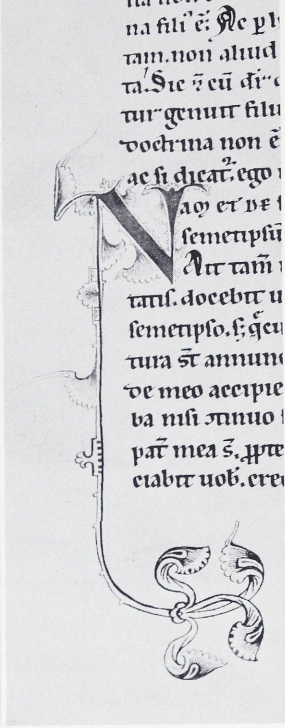 na fili ē. Ac ꝑ
tam. non aliud
ta. Sic ⁊ cū dic
tur genuit filiu
doctrina non ē
ac si dicat. ego
Nam et de
semetipsū
Ait tam̄
tatis. docebit u
semetipso. s;
tura st̄ annunc
de meo accipie
ba nisi
pat̄ mea s̄. ꝓpte
ciabit uob. cre